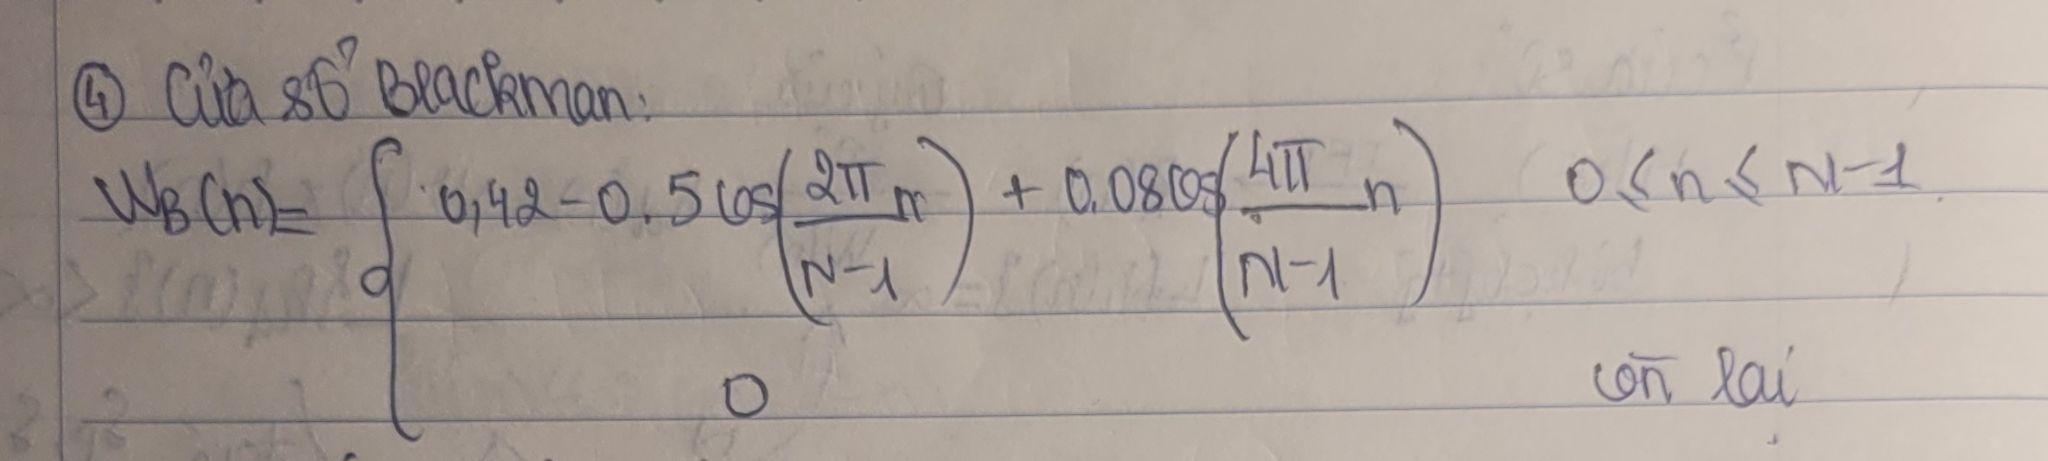 ④ Cửa sổ Blackman:
W_B(n) = { 0,42 - 0.5 cos(2π/(N-1) n) + 0.08 cos(4π/(N-1) n)   0 ≤ n ≤ N-1
0   còn lại